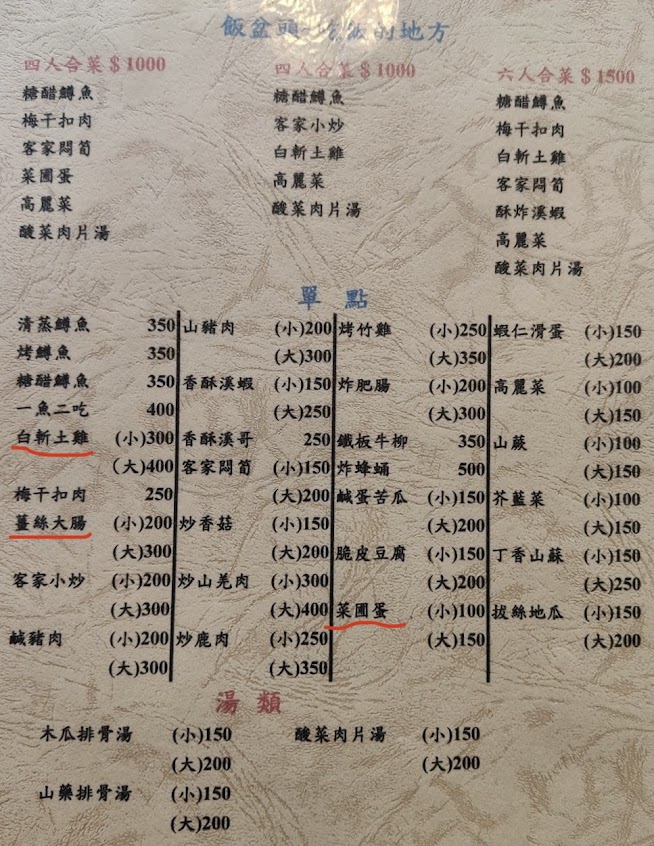 飯盆頭 的地方
四人合菜＄1000
糖醋鱒魚
梅干扣肉
客家悶筍
菜圃蛋
高麗菜
酸菜肉片湯
四人合菜＄1000
糖醋鱒魚
客家小炒
白斬土雞
高麗菜
酸菜肉片湯
六人合菜＄1500
糖醋鱒魚
梅干扣肉
白斬土雞
客家悶筍
酥炸溪蝦
高麗菜
酸菜肉片湯
單 點
清蒸鱒魚 350
烤鱒魚 350
糖醋鱒魚 350
一魚二吃 400
白斬土雞 (小)300
(大)400
梅干扣肉 250
薑絲大腸 (小)200
(大)300
客家小炒 (小)200
(大)300
鹹豬肉 (小)200
(大)300
山豬肉 (小)200
(大)300
香酥溪蝦 (小)150
(大)250
香酥溪哥 250
客家悶筍 (小)150
(大)200
炒香菇 (小)150
(大)200
炒山羌肉 (小)300
(大)400
炒鹿肉 (小)250
(大)350
烤竹雞 (小)250
(大)350
炸肥腸 (小)200
(大)300
鐵板牛柳 350
炸蜂蛹 500
鹹蛋苦瓜 (小)150
(大)200
脆皮豆腐 (小)150
(大)200
菜圃蛋 (小)100
(大)150
蝦仁滑蛋 (小)150
(大)200
高麗菜 (小)100
(大)150
山蕨 (小)100
(大)150
芥藍菜 (小)100
(大)150
丁香山蘇 (小)150
(大)250
拔絲地瓜 (小)150
(大)200
湯 類
木瓜排骨湯 (小)150
(大)200
山藥排骨湯 (小)150
(大)200
酸菜肉片湯 (小)150
(大)200